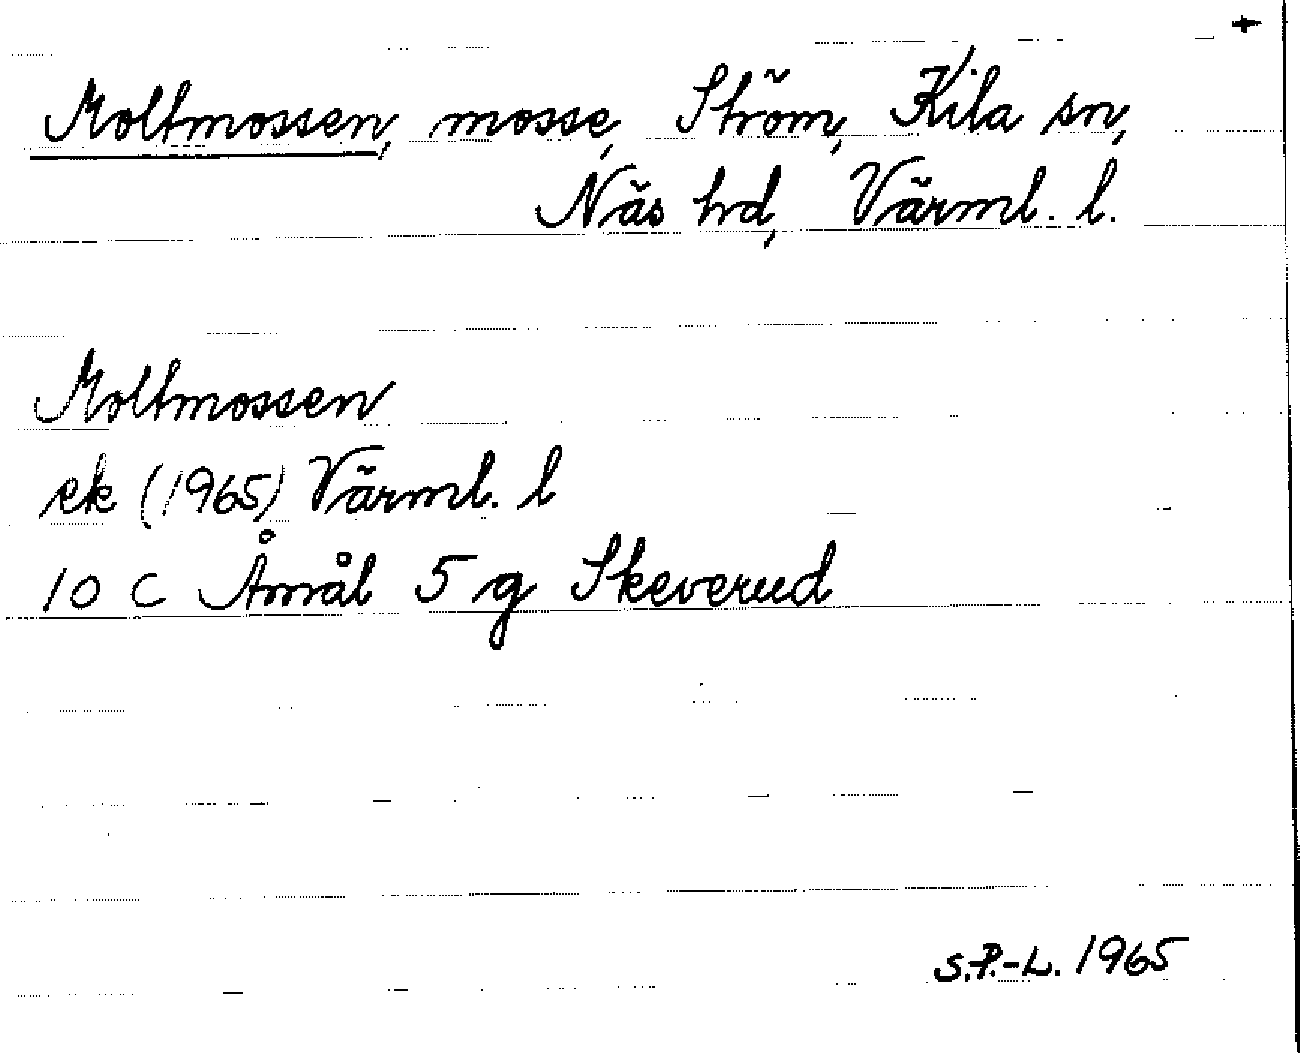 +
Moltmossen, mosse, Ström, Kila sn,
Näs hd, Värml. l.
Moltmossen
ek (1965) Värml. l
10 C Åmål 5 g Skeverud
S.P.-L. 1965